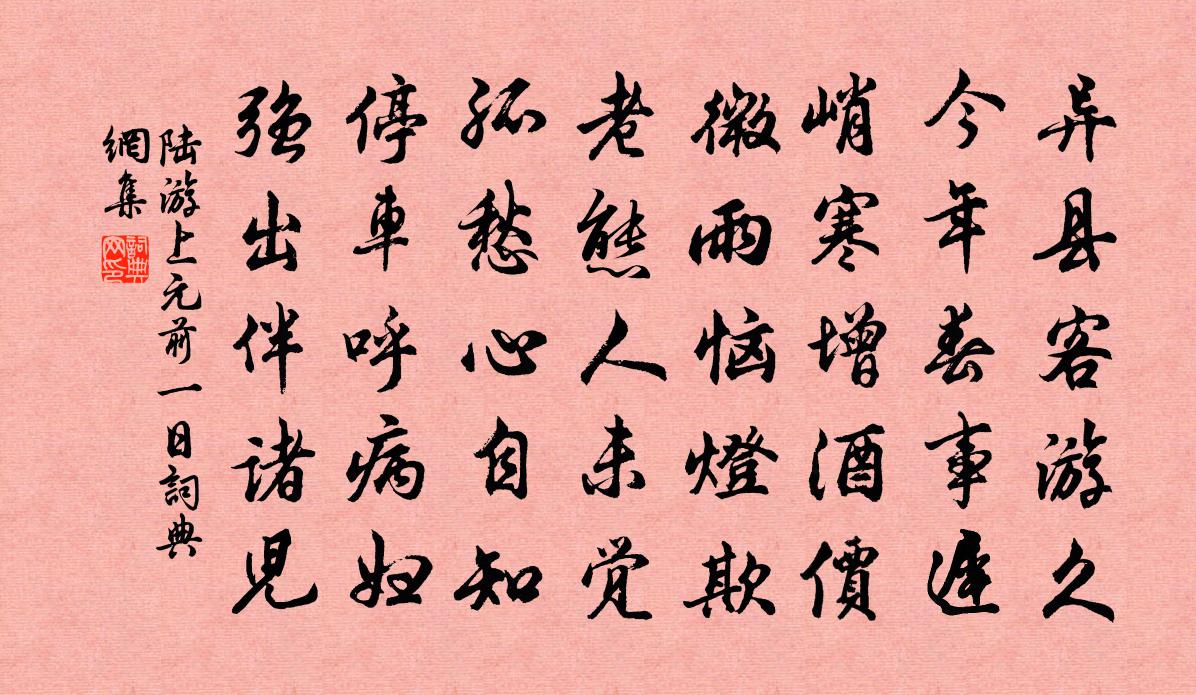 异县客游久
今年春事遲
峭寒增酒價
微雨恼燈欺
老態人未觉
孤愁心自知
停車呼病妇
强出伴諸兒
陆游上元前一日詞典
網集
詞典
网印